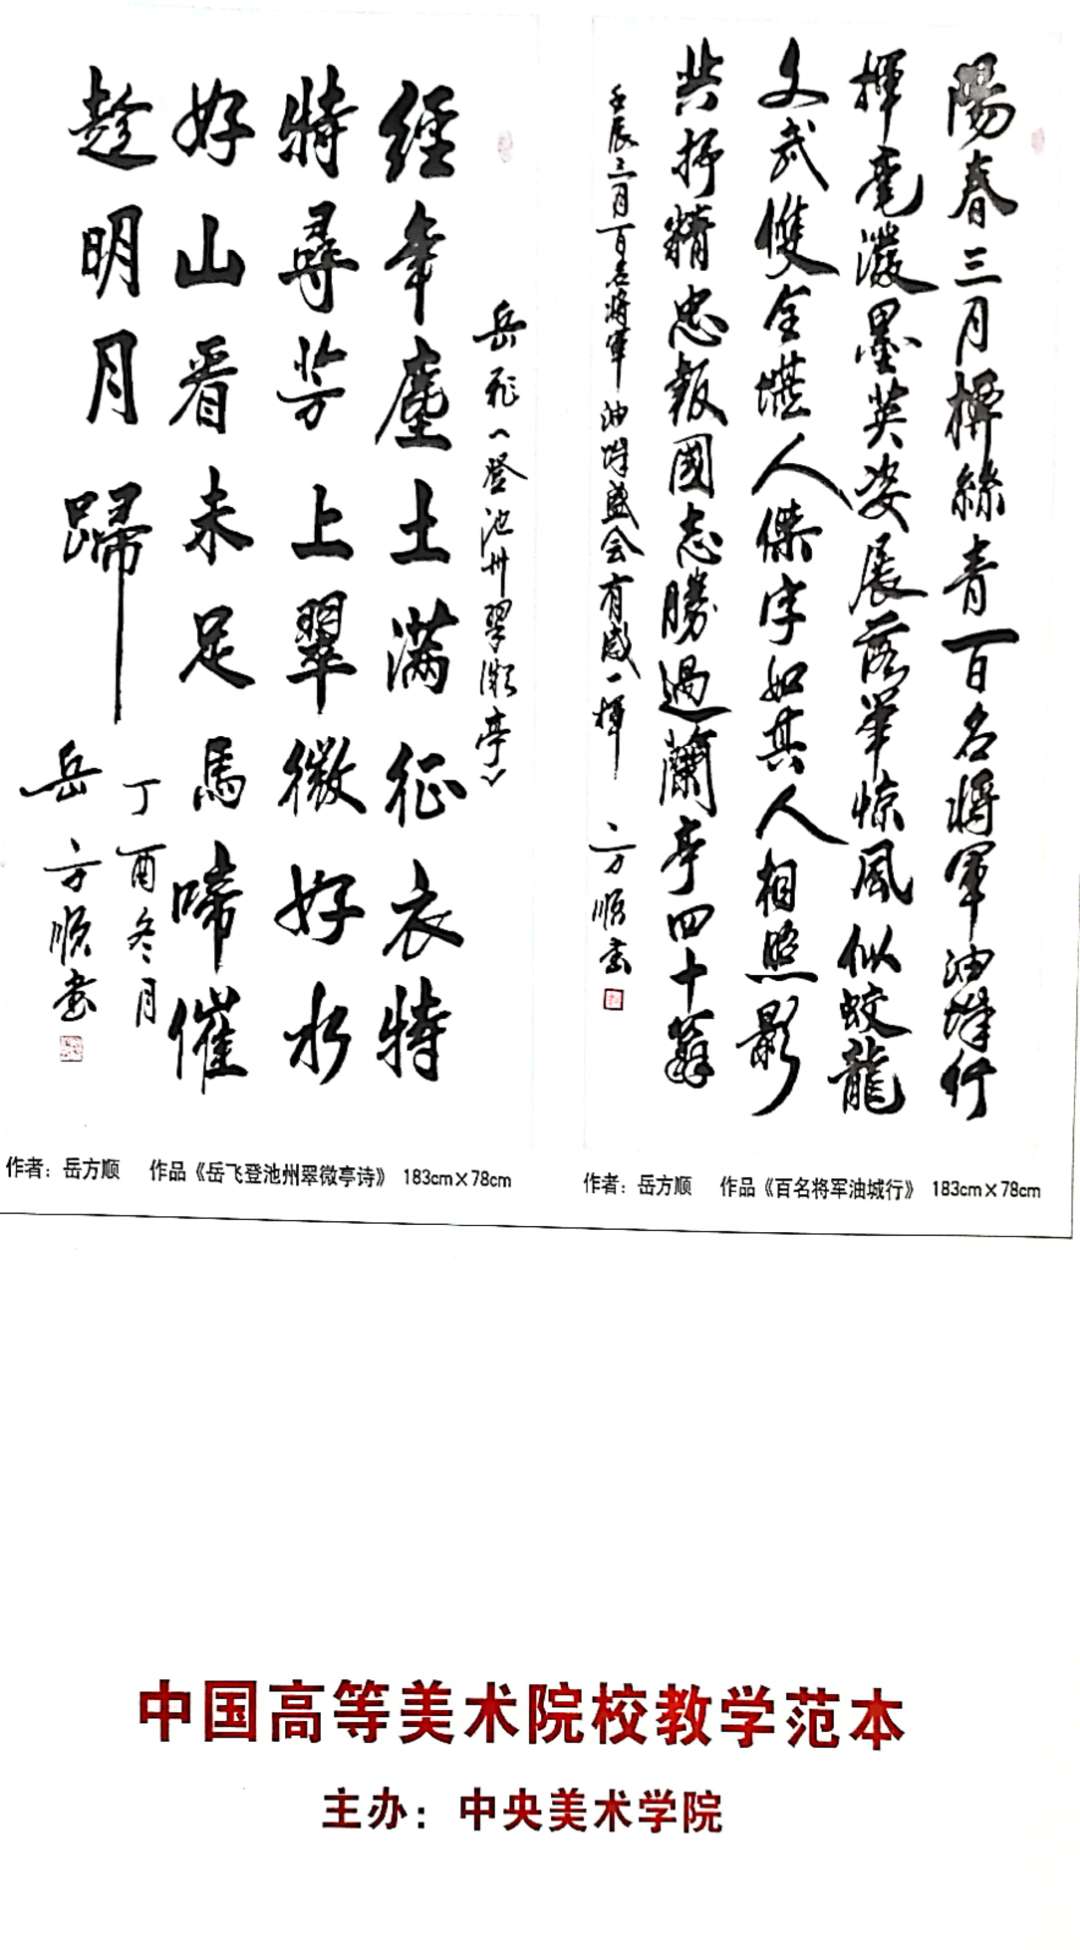 陽春三月柳絲青百名将軍油城行
揮毫潑墨英姿展落筆惊風似蛟龍
文武雙全堪人傑字如其人相照影
共抒精忠報國志勝過蘭亭四十翁
壬辰三月百名将軍油城盛会有感一揮 方順書
岳飛《登池州翠微亭》
經年塵土滿征衣特
特尋芳上翠微好水
好山看未足馬啼催
趁明月歸
丁酉冬月
岳方順書
作者：岳方顺 作品《岳飞登池州翠微亭诗》 183cm×78cm
作者：岳方顺 作品《百名将军油城行》 183cm×78cm
中国高等美术院校教学范本
主办：中央美术学院